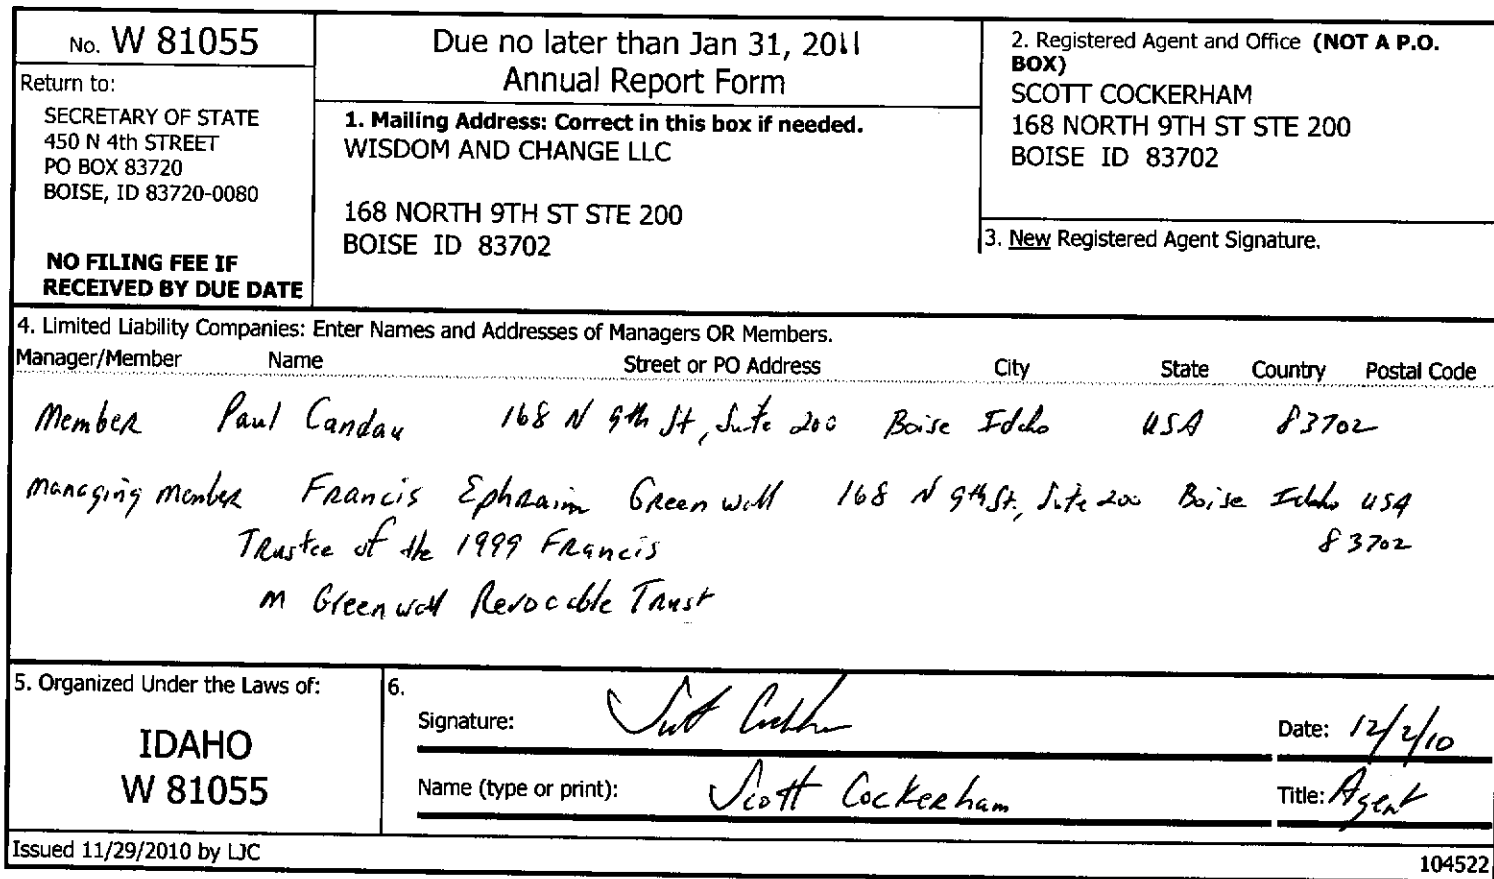 No. W 81055
Return to:
SECRETARY OF STATE
450 N 4th STREET
PO BOX 83720
BOISE, ID 83720-0080
NO FILING FEE IF
RECEIVED BY DUE DATE
Due no later than Jan 31, 2011
Annual Report Form
1. Mailing Address: Correct in this box if needed.
WISDOM AND CHANGE LLC
168 NORTH 9TH ST STE 200
BOISE ID 83702
2. Registered Agent and Office (NOT A P.O.
BOX)
SCOTT COCKERHAM
168 NORTH 9TH ST STE 200
BOISE ID 83702
3. New Registered Agent Signature.
4. Limited Liability Companies: Enter Names and Addresses of Managers OR Members.
Manager/Member Name Street or PO Address City State Country Postal Code
Member Paul Candau 168 N 9th St, Suite 200 Boise Idaho USA 83702
Managing Member Francis Ephraim Greenwell 168 N 9th St, Suite 200 Boise Idaho USA
83702
Trustee of the 1999 Francis
M Greenwall Revocable Trust
5. Organized Under the Laws of:
IDAHO
W 81055
6.
Signature: Scott Cockerham
Date: 12/2/10
Name (type or print): Scott Cockerham
Title: Agent
Issued 11/29/2010 by LJC
104522